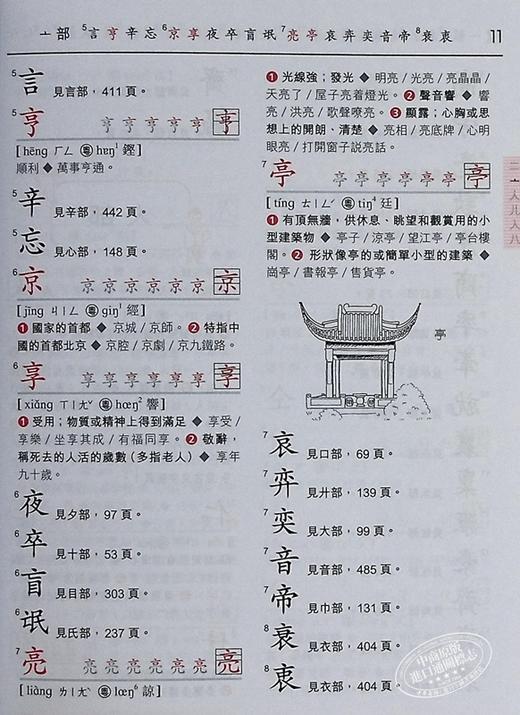 亠部 ⁵言亨辛忘⁶京享夜卒盲氓⁷亮亭哀弈奕音帝⁸衰衷 11
⁵言 見言部,411 頁。
⁵亨 亨亨亨亨亨亨 亨
[hēng ㄏㄥ 粵 hɐŋ¹ 鏗]
順利 ◆ 萬事亨通。
辛 見辛部,442 頁。
忘 見心部,148 頁。
⁶京 京京京京京京京 京
[jīng ㄐㄧㄥ 粵 giŋ¹ 經]
❶ 國家的首都 ◆ 京城/京師。❷ 特指中
國的首都北京 ◆ 京腔/京劇/京九鐵路。
⁶享 享享享享享享享 享
[xiǎng ㄒㄧㄤˇ 粵 hœŋ² 響]
❶ 受用;物質或精神上得到滿足 ◆ 享受/
享樂/坐享其成/有福同享。❷ 敬辭,
稱死去的人活的歲數(多指老人)◆ 享年
九十歲。
⁶夜 見夕部,97 頁。
⁶卒 見十部,53 頁。
⁶盲 見目部,303 頁。
氓 見氏部,237 頁。
⁷亮 亮亮亮亮亮亮 亮
[liàng ㄌㄧㄤˋ 粵 lœŋ⁶ 諒]
❶ 光線強;發光 ◆ 明亮/光亮/亮晶晶/
天亮了/屋子亮着燈光。❷ 聲音響 ◆ 響
亮/洪亮/歌聲嘹亮。❸ 顯露;心胸或思
想上的開朗、清楚 ◆ 亮相/亮底牌/心明
眼亮/打開窗子說亮話。
⁷亭 亭亭亭亭亭亭亭 亭
[tíng ㄊㄧㄥˊ 粵 tiŋ⁴ 廷]
❶ 有頂無牆,供休息、眺望和觀賞用的小
型建築物 ◆ 亭子/涼亭/望江亭/亭台樓
閣。❷ 形狀像亭的或簡單小型的建築 ◆
崗亭/書報亭/售貨亭。
亭
⁷哀 見口部,69 頁。
⁷弈 見廾部,139 頁。
⁷奕 見大部,99 頁。
⁷音 見音部,485 頁。
⁷帝 見巾部,131 頁。
⁸衰 見衣部,404 頁。
⁸衷 見衣部,404 頁。
二亠人儿入八
中商原版
進口通關標志